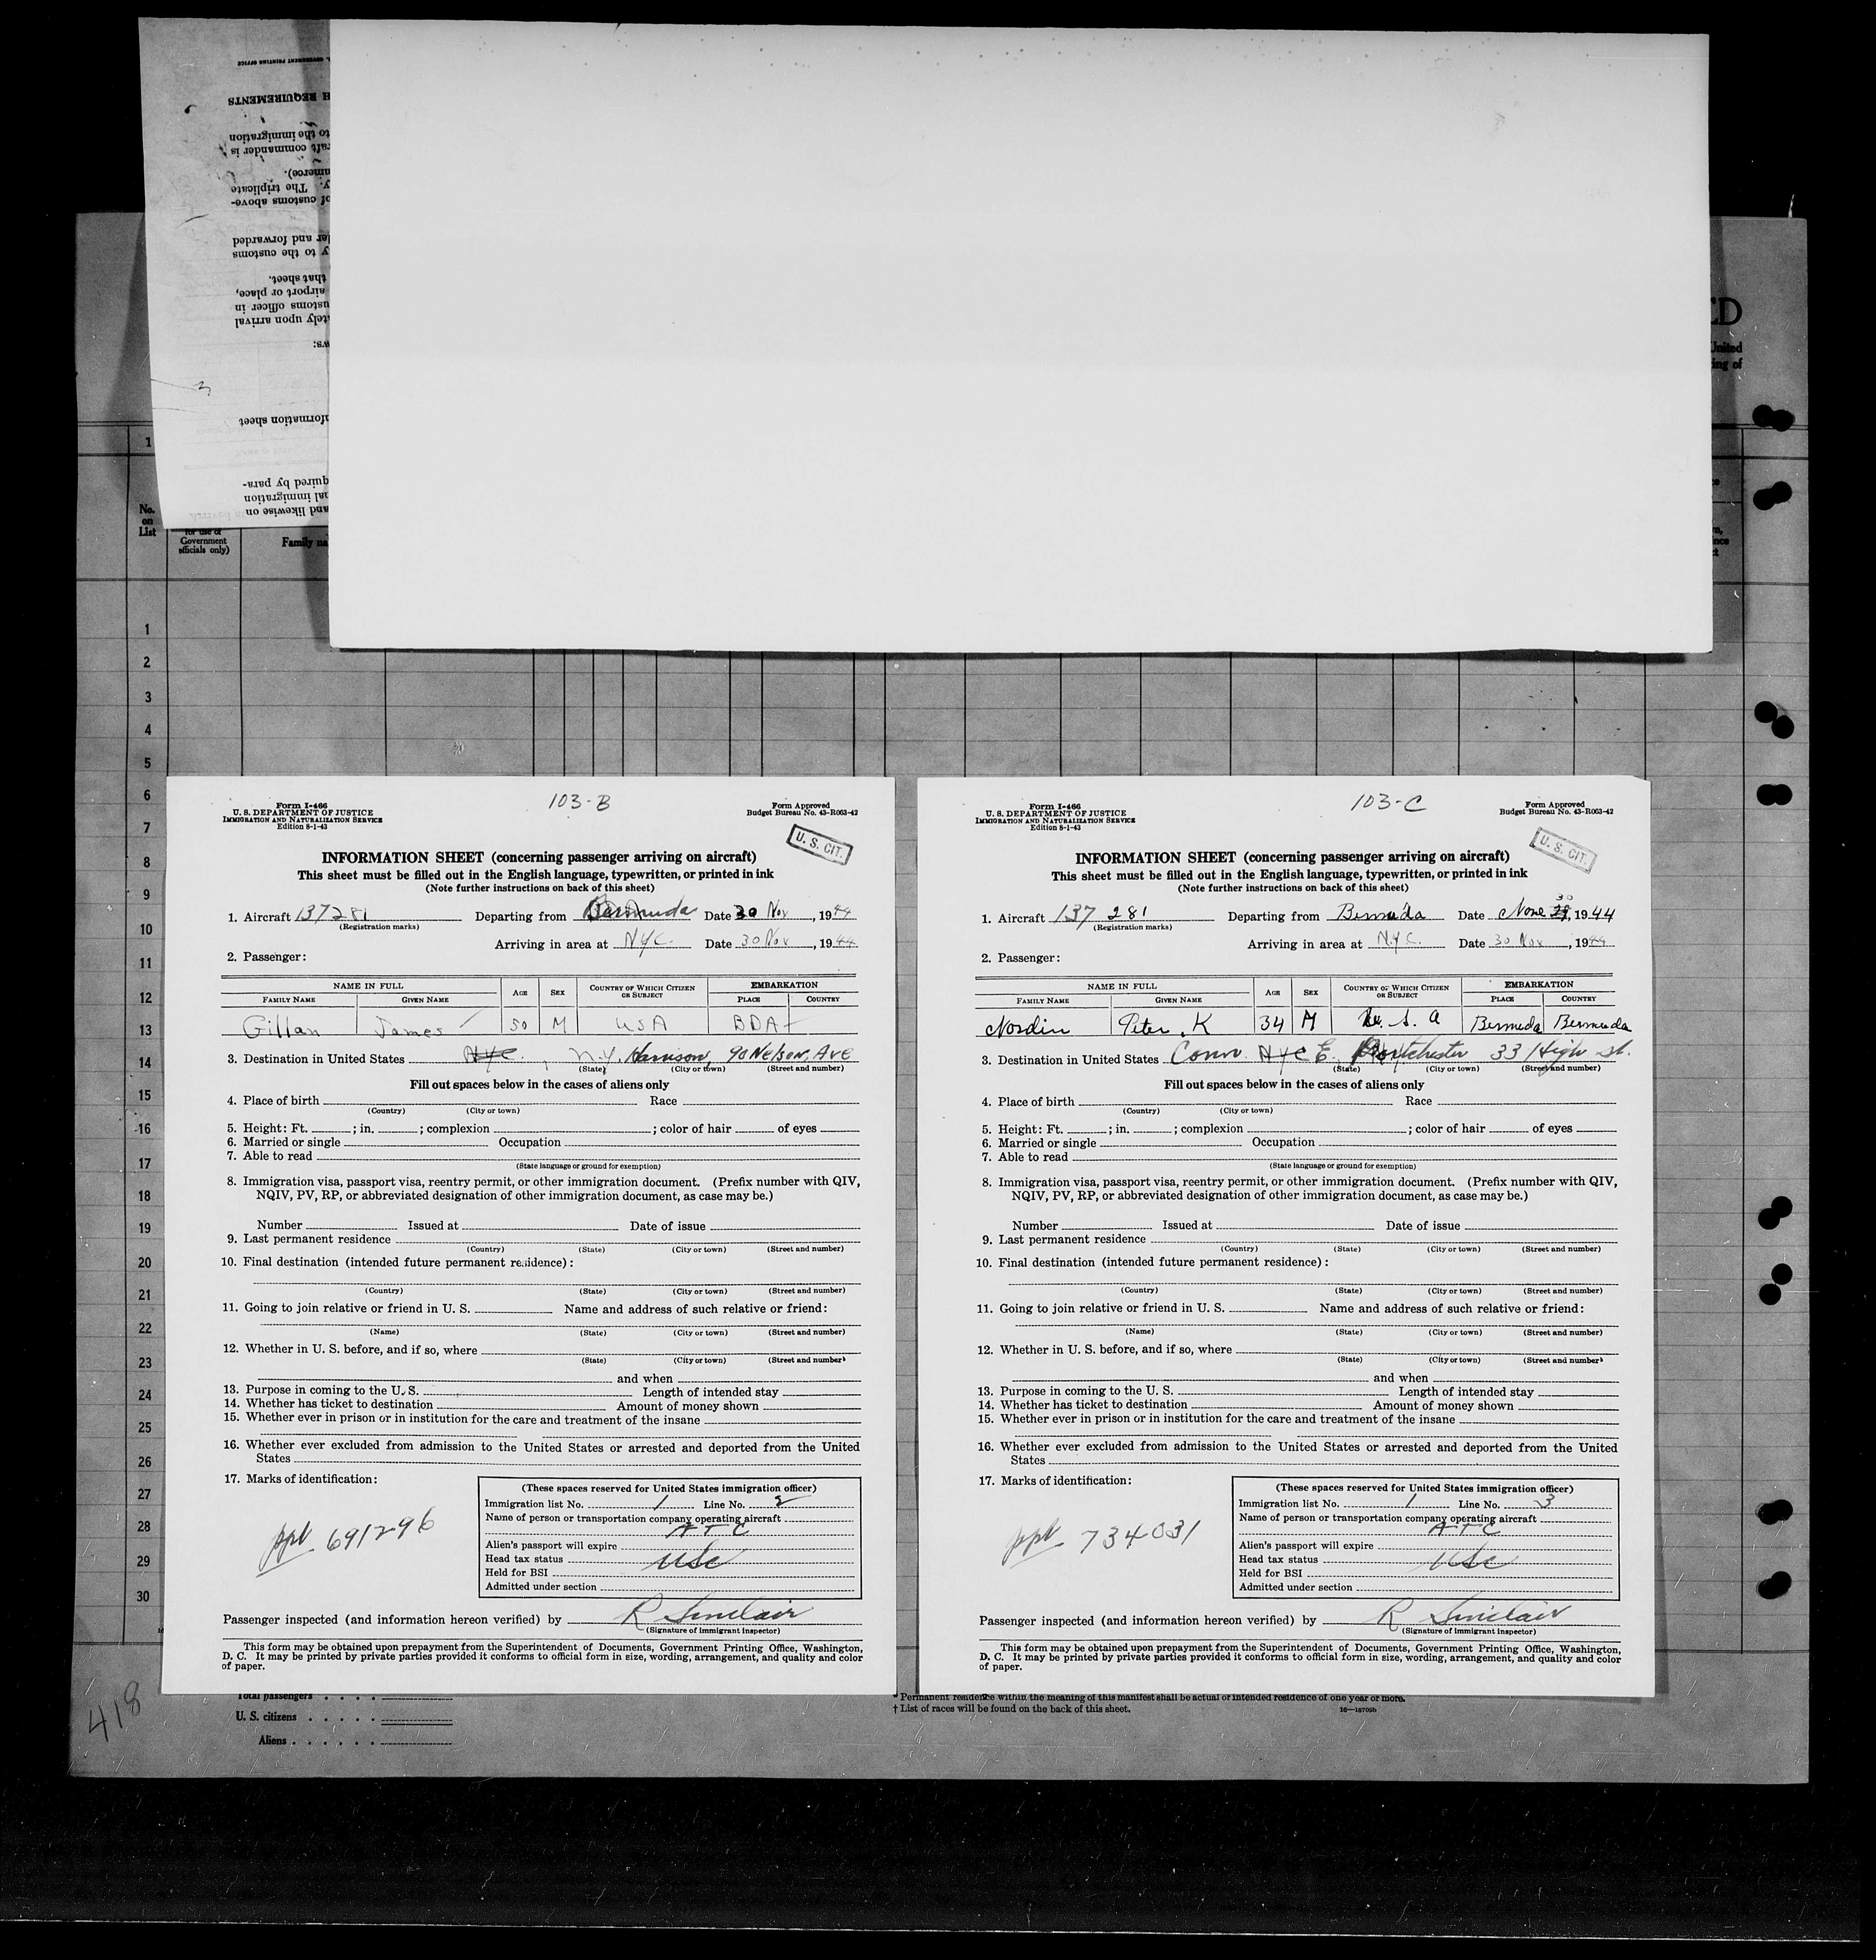 GOVERNMENT PRINTING OFFICE
H REQUIREMENTS
to the immigration
raft commander is
mmerce).
y. The triplicate
of customs above-
der and forwarded
y to the customs
that sheet.
airport or place,
ustoms officer in
ately upon arrival
ws:
nformation sheet
quired by para-
nal immigration
and likewise on
ED
United
ing of
1
No.
on
List
for use of
Government
officials only)
Family na
1
2
3
4
5
6
7
8
9
10
11
12
13
14
15
16
17
18
19
20
21
22
23
24
25
26
27
28
29
30
103-B
Form I-466
U. S. DEPARTMENT OF JUSTICE
IMMIGRATION AND NATURALIZATION SERVICE
Edition 8-1-43
Form Approved
Budget Bureau No. 43-R063-42
U. S. CIT.
INFORMATION SHEET (concerning passenger arriving on aircraft)
This sheet must be filled out in the English language, typewritten, or printed in ink
(Note further instructions on back of this sheet)
1. Aircraft 137281 Departing from Bermuda Date 30 Nov, 1944
(Registration marks)
Arriving in area at NYC. Date 30 Nov, 1944
2. Passenger:
NAME IN FULL AGE SEX COUNTRY OF WHICH CITIZEN OR SUBJECT EMBARKATION
FAMILY NAME GIVEN NAME PLACE COUNTRY
Gillan James 50 M USA BDA
3. Destination in United States NYC. N.Y. Harrison, 90 Nelson, Ave
(State) (City or town) (Street and number)
Fill out spaces below in the cases of aliens only
4. Place of birth Race
(Country) (City or town)
5. Height: Ft. ; in. ; complexion ; color of hair of eyes
6. Married or single Occupation
7. Able to read
(State language or ground for exemption)
8. Immigration visa, passport visa, reentry permit, or other immigration document. (Prefix number with QIV,
NQIV, PV, RP, or abbreviated designation of other immigration document, as case may be.)
Number Issued at Date of issue
9. Last permanent residence
(Country) (State) (City or town) (Street and number)
10. Final destination (intended future permanent residence):
(Country) (State) (City or town) (Street and number)
11. Going to join relative or friend in U. S. Name and address of such relative or friend:
(Name) (State) (City or town) (Street and number)
12. Whether in U. S. before, and if so, where
(State) (City or town) (Street and number)
and when
13. Purpose in coming to the U. S. Length of intended stay
14. Whether has ticket to destination Amount of money shown
15. Whether ever in prison or in institution for the care and treatment of the insane
16. Whether ever excluded from admission to the United States or arrested and deported from the United
States
17. Marks of identification:
ppt 691296
(These spaces reserved for United States immigration officer)
Immigration list No. 1 Line No. 2
Name of person or transportation company operating aircraft
ATC
Alien's passport will expire
Head tax status USC
Held for BSI
Admitted under section
Passenger inspected (and information hereon verified) by R Sinclair
(Signature of immigrant inspector)
This form may be obtained upon prepayment from the Superintendent of Documents, Government Printing Office, Washington,
D. C. It may be printed by private parties provided it conforms to official form in size, wording, arrangement, and quality and color
of paper.
103-C
Form I-466
U. S. DEPARTMENT OF JUSTICE
IMMIGRATION AND NATURALIZATION SERVICE
Edition 8-1-43
Form Approved
Budget Bureau No. 43-R063-42
U. S. CIT.
INFORMATION SHEET (concerning passenger arriving on aircraft)
This sheet must be filled out in the English language, typewritten, or printed in ink
(Note further instructions on back of this sheet)
30
1. Aircraft 137 281 Departing from Bermuda Date Nove, 1944
(Registration marks)
Arriving in area at N.Y.C. Date 30 Nov, 1944
2. Passenger:
NAME IN FULL AGE SEX COUNTRY OF WHICH CITIZEN OR SUBJECT EMBARKATION
FAMILY NAME GIVEN NAME PLACE COUNTRY
Nordin Peter. K 34 M U. S. A Bermuda Bermuda
3. Destination in United States Conn NYC E. Portchester 33 High St.
(State) (City or town) (Street and number)
Fill out spaces below in the cases of aliens only
4. Place of birth Race
(Country) (City or town)
5. Height: Ft. ; in. ; complexion ; color of hair of eyes
6. Married or single Occupation
7. Able to read
(State language or ground for exemption)
8. Immigration visa, passport visa, reentry permit, or other immigration document. (Prefix number with QIV,
NQIV, PV, RP, or abbreviated designation of other immigration document, as case may be.)
Number Issued at Date of issue
9. Last permanent residence
(Country) (State) (City or town) (Street and number)
10. Final destination (intended future permanent residence):
(Country) (State) (City or town) (Street and number)
11. Going to join relative or friend in U. S. Name and address of such relative or friend:
(Name) (State) (City or town) (Street and number)
12. Whether in U. S. before, and if so, where
(State) (City or town) (Street and number)
and when
13. Purpose in coming to the U. S. Length of intended stay
14. Whether has ticket to destination Amount of money shown
15. Whether ever in prison or in institution for the care and treatment of the insane
16. Whether ever excluded from admission to the United States or arrested and deported from the United
States
17. Marks of identification:
ppt 734031
(These spaces reserved for United States immigration officer)
Immigration list No. 1 Line No. 3
Name of person or transportation company operating aircraft
ATC
Alien's passport will expire
Head tax status USC
Held for BSI
Admitted under section
Passenger inspected (and information hereon verified) by R Sinclair
(Signature of immigrant inspector)
This form may be obtained upon prepayment from the Superintendent of Documents, Government Printing Office, Washington,
D. C. It may be printed by private parties provided it conforms to official form in size, wording, arrangement, and quality and color
of paper.
418
Total passengers
U. S. citizens
Aliens
* Permanent residence within the meaning of this manifest shall be actual or intended residence of one year or more.
† List of races will be found on the back of this sheet.